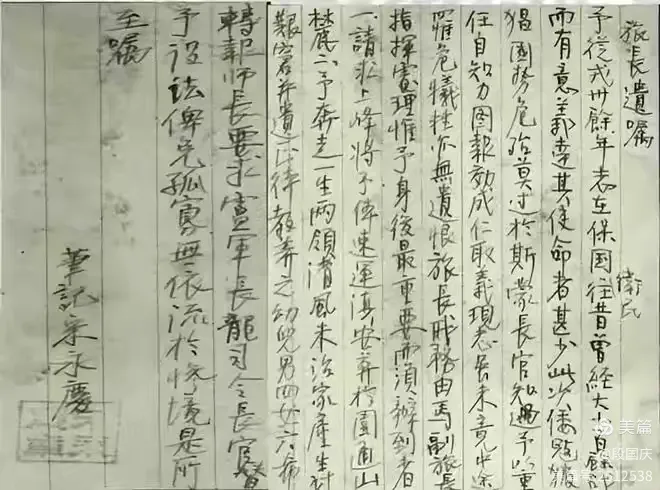 旅長遺囑
予從戎卅餘年志在保国衛民往昔曾經大小百餘
而有意義達其使命者甚少此次倭
猖國勢危殆莫過於斯蒙長官知遇予以重
任自知力图報効成仁取義現志尚未竟中途
罹危犧牲亦無遺恨旅長職務由馬副旅長
指揮處理惟予身後最重要而須辦到者
一請求上峰將予体速運滇安葬於圓通山
麓二予奔走一生两領清風未治家產生計
艱窘并遺一律教养之幼児男四女六希
轉報師長要求盧軍長龍司令長官督
予設法俾免孤寡無依流於慘境是所
至囑
筆記宋永慶
美篇
段国庆
2512538